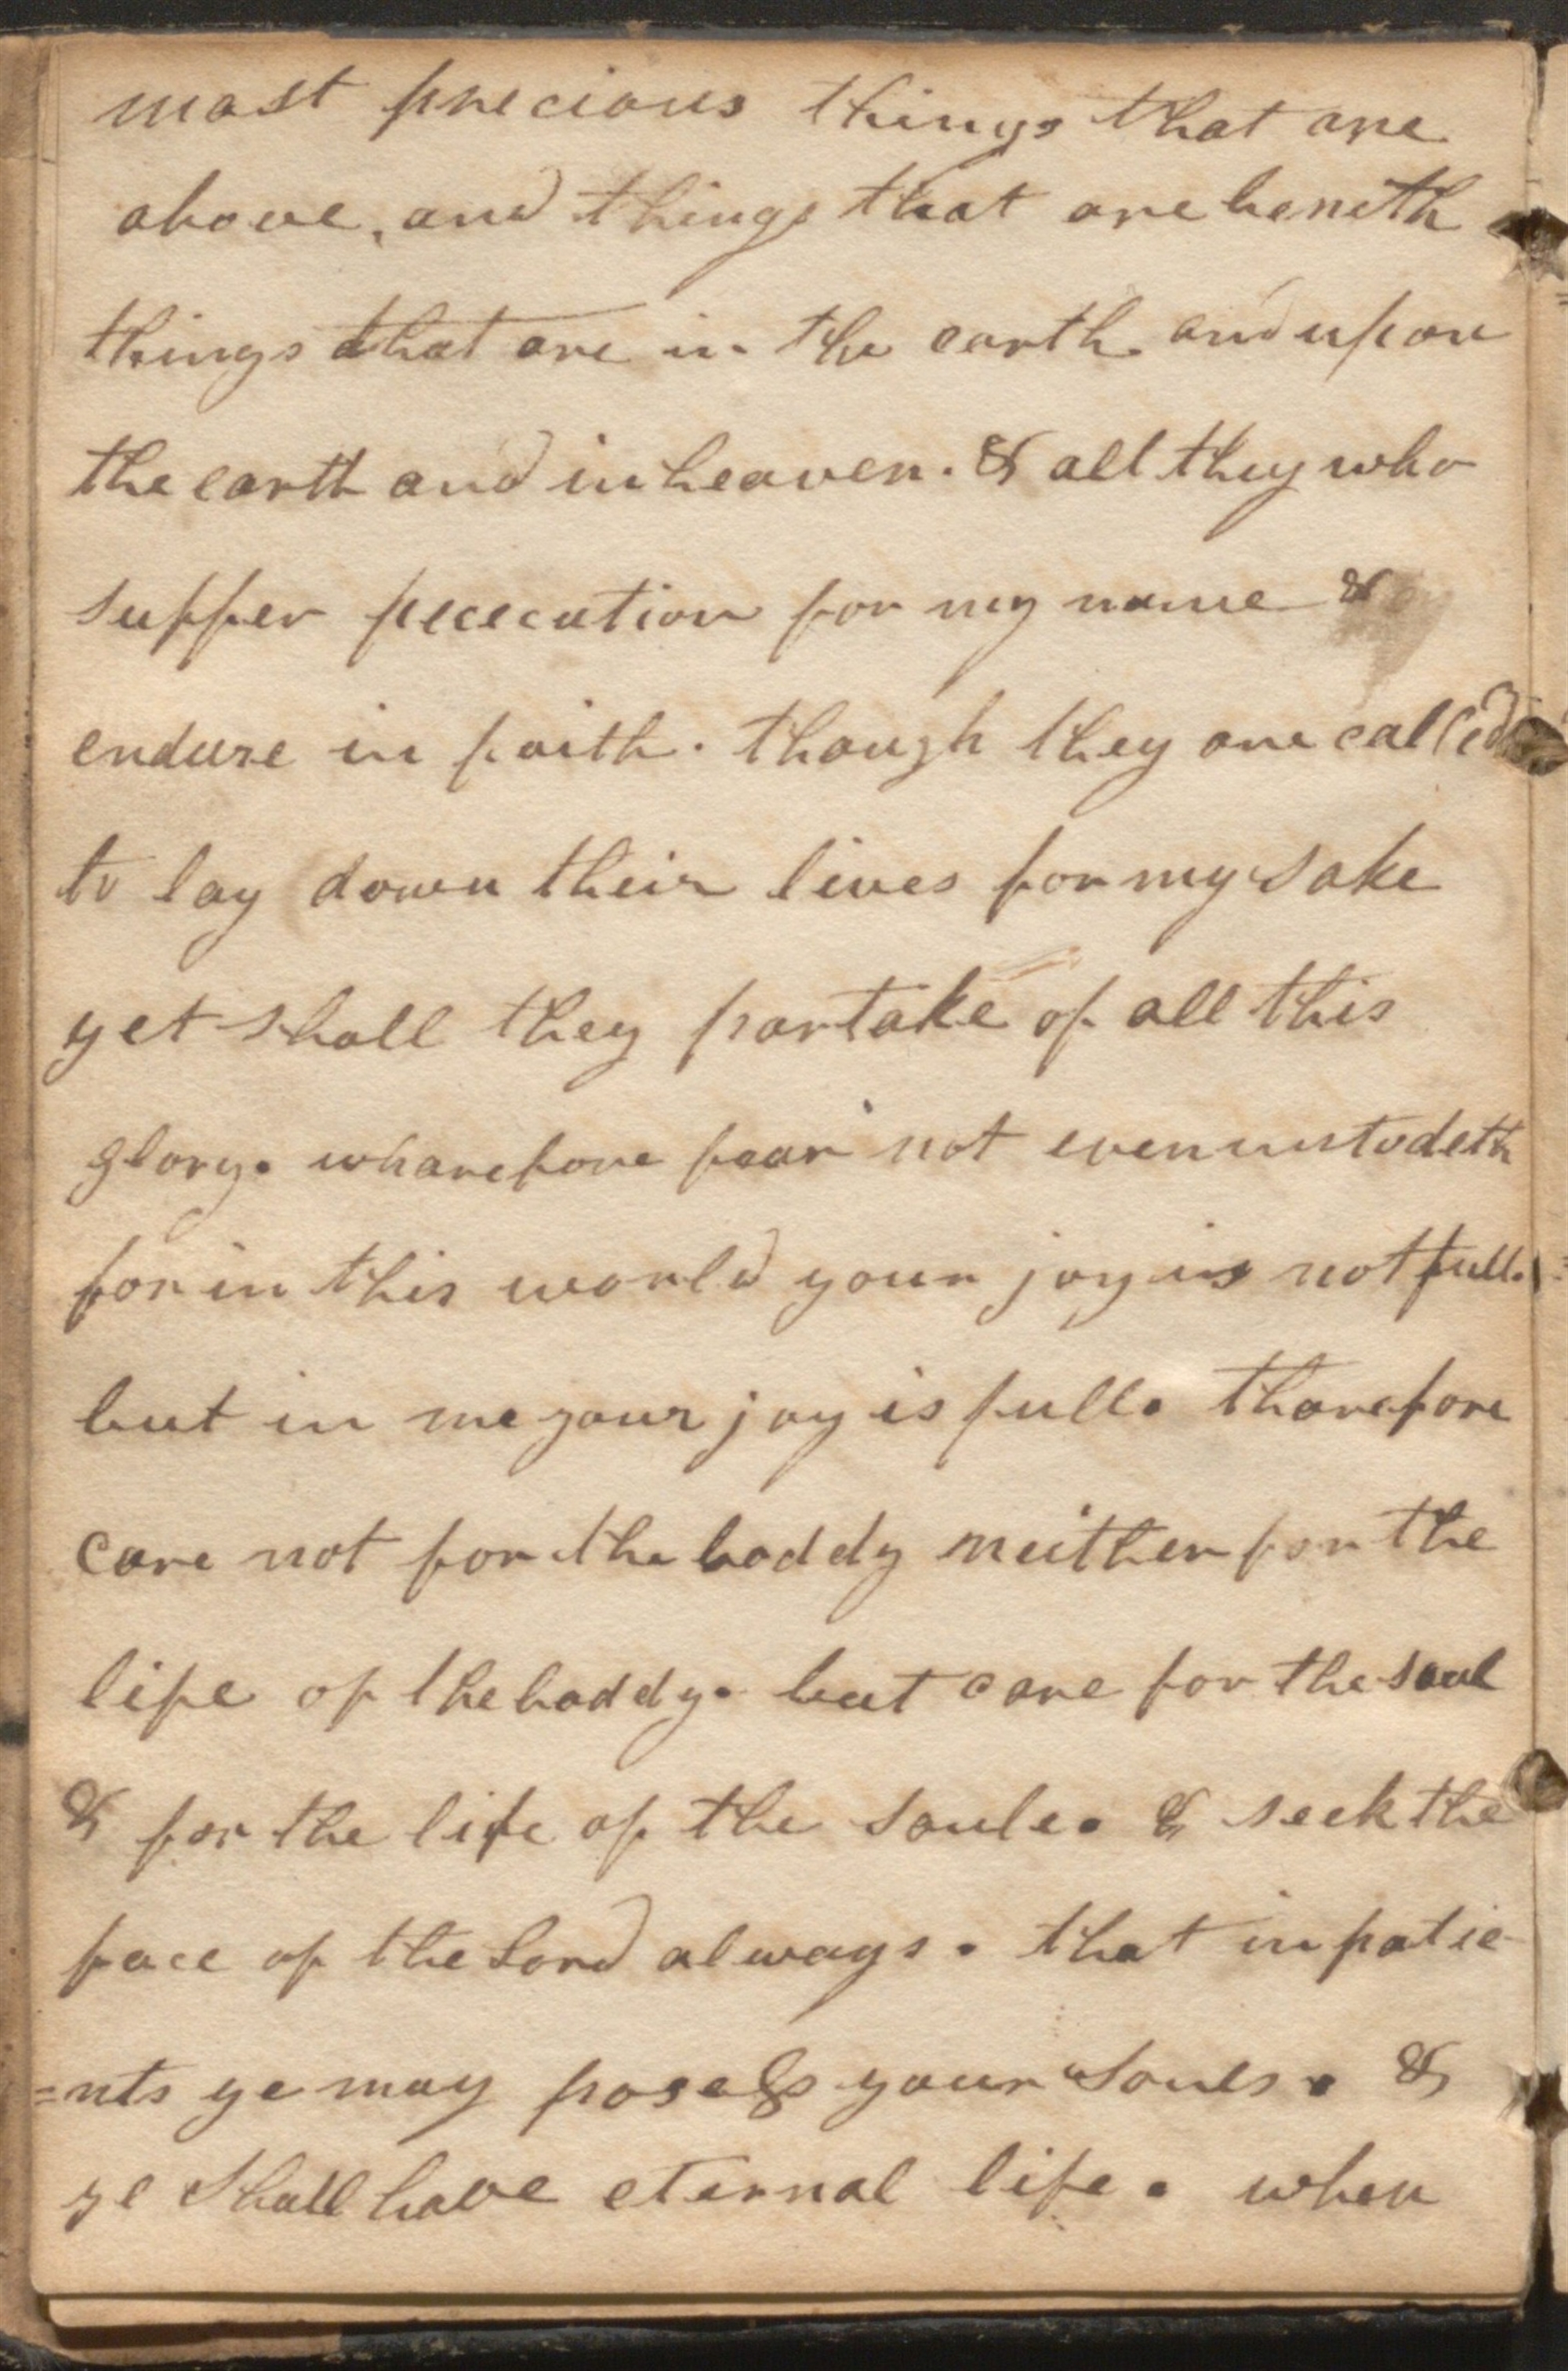 most precious things that are
above, and things that are beneth
things that are in the earth and upon
the earth and in heaven. & all they who
suffer pececution for my name &
endure in faith. though they are called
to lay down their lives for my sake
yet shall they partake of all this
glory. wharefore fear not even unto deth
for in this world your joy is not full.
but in me your joy is full. tharefore
care not for the boddy neither for the
life of the boddy. but care for the soul
& for the life of the soule. & seek the
face of the Lord always. that in patie
=nts ye may posess your Souls. &
ye Shall have eternal life. when